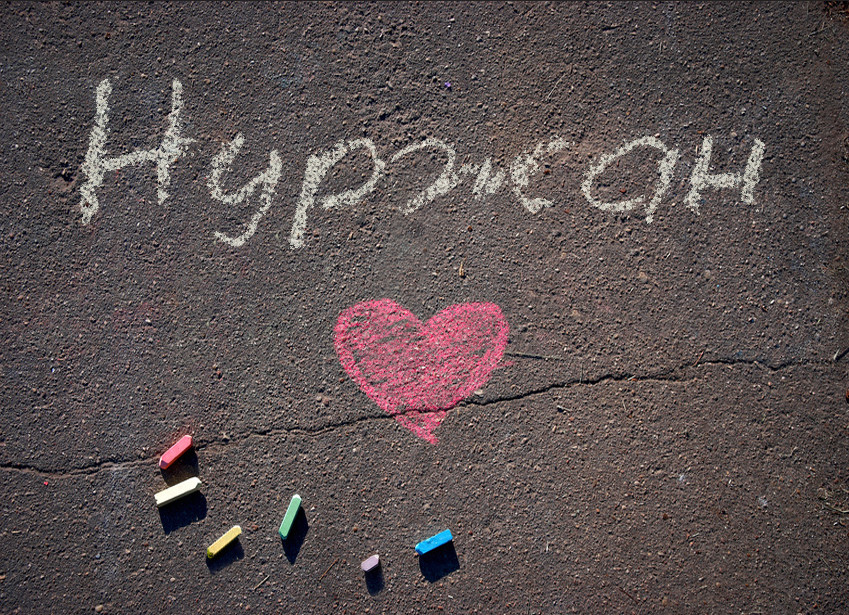 Нуржан